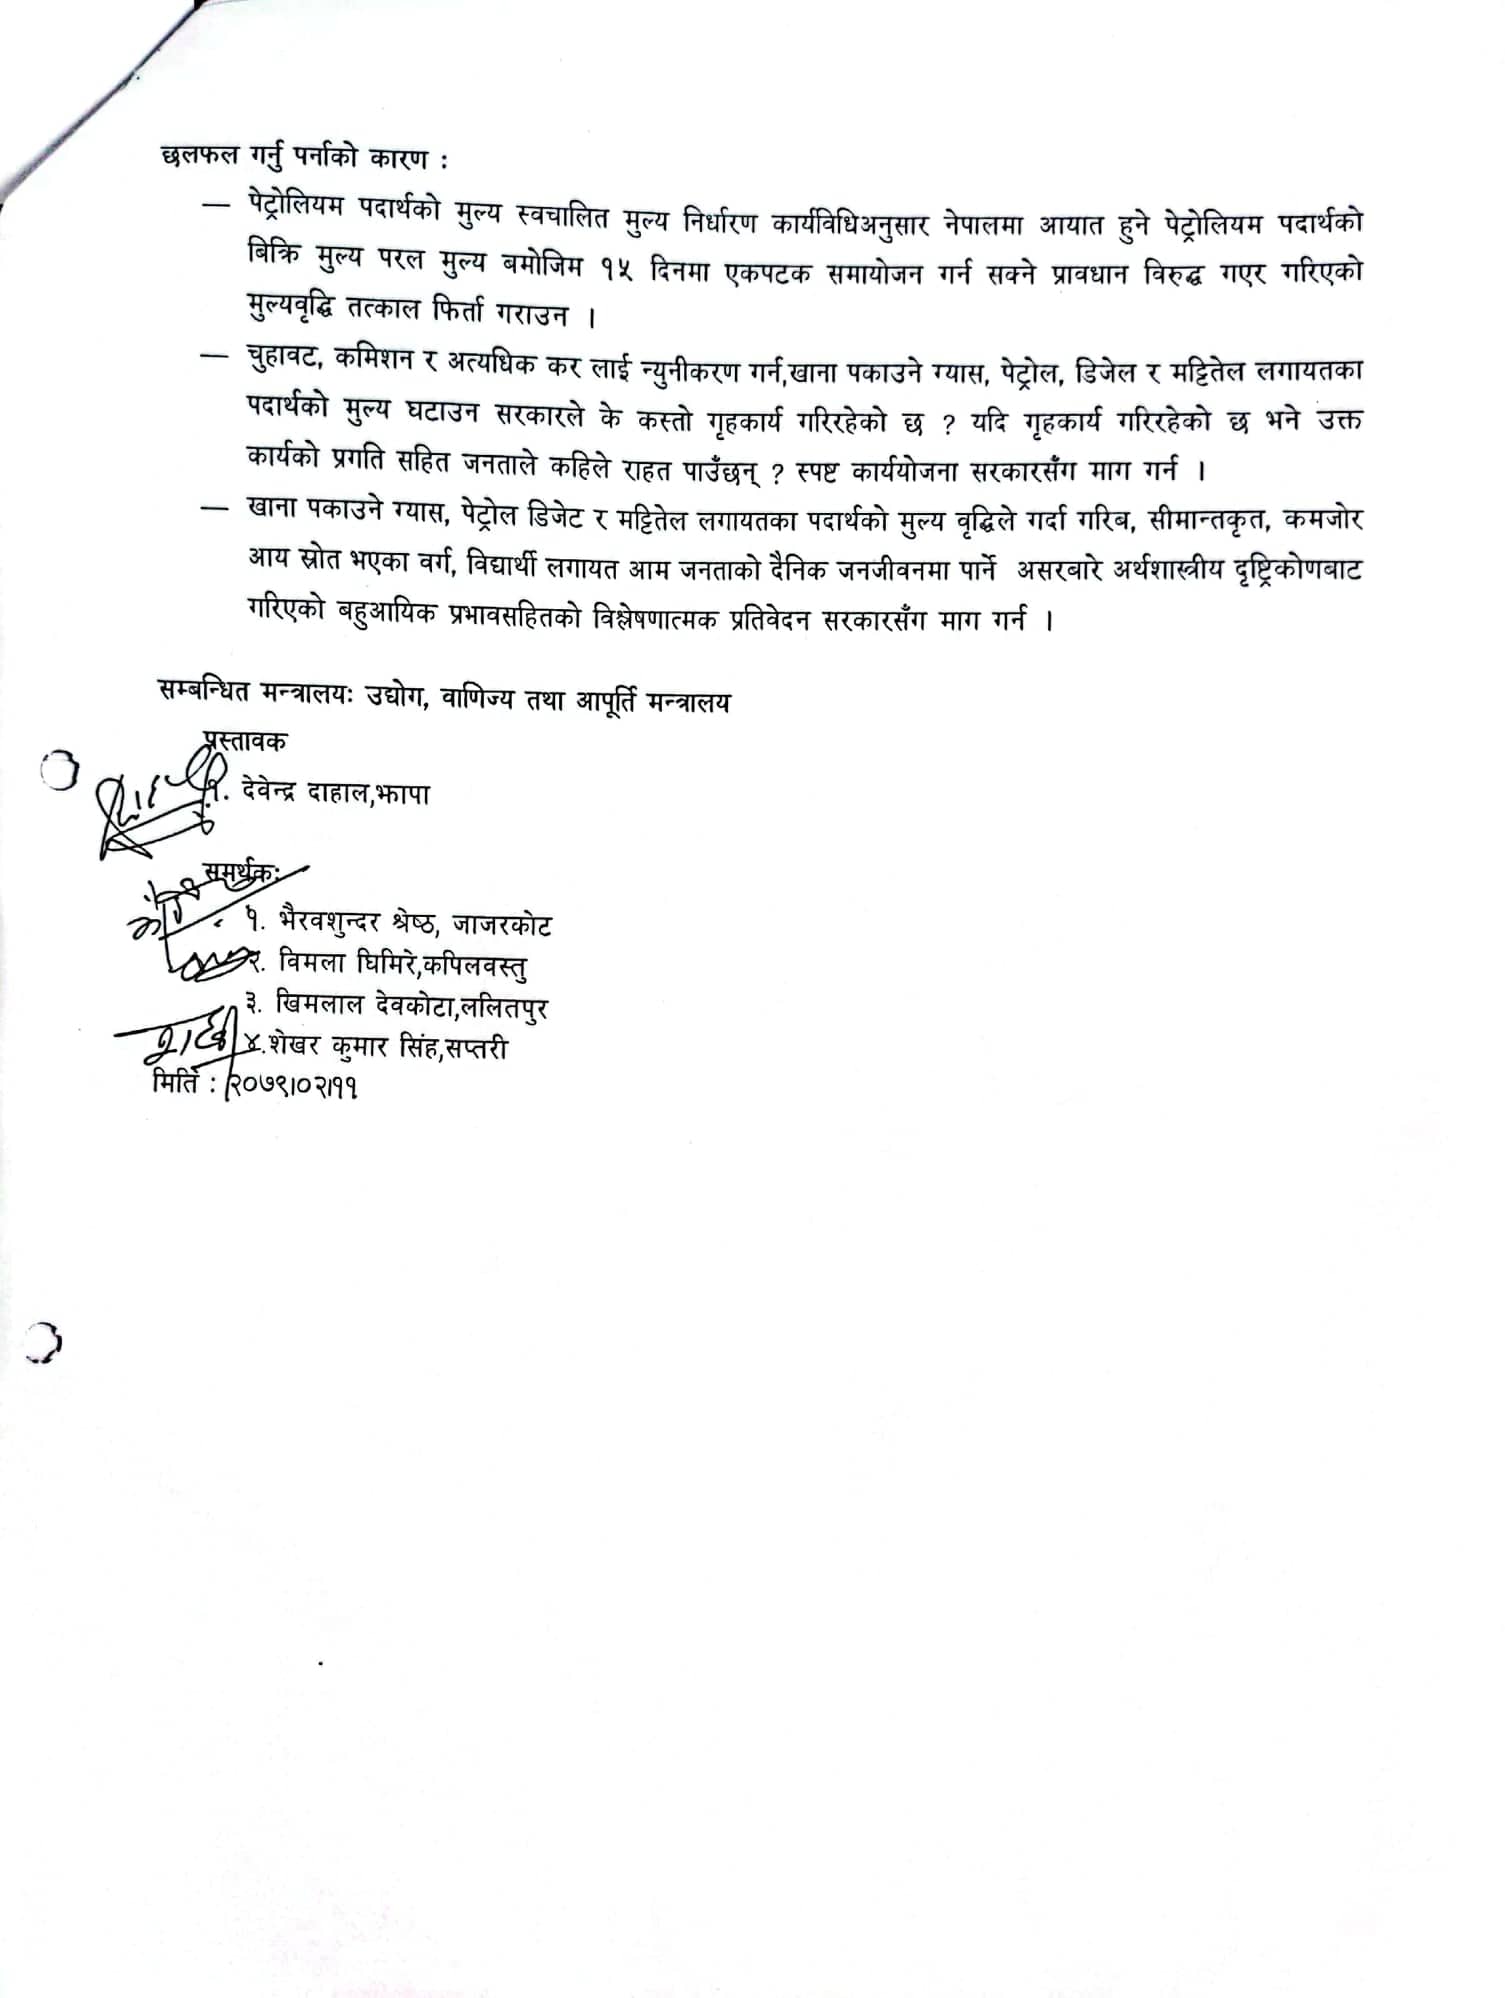 छलफल गर्नु पर्नाको कारण :
— पेट्रोलियम पदार्थको मुल्य स्वचालित मुल्य निर्धारण कार्यविधिअनुसार नेपालमा आयात हुने पेट्रोलियम पदार्थको
बिक्रि मुल्य परल मुल्य बमोजिम १५ दिनमा एकपटक समायोजन गर्न सक्ने प्रावधान विरुद्ध गएर गरिएको
मुल्यवृद्धि तत्काल फिर्ता गराउन ।
— चुहावट, कमिशन र अत्यधिक कर लाई न्युनीकरण गर्न,खाना पकाउने ग्यास, पेट्रोल, डिजेल र मट्टितेल लगायतका
पदार्थको मुल्य घटाउन सरकारले के कस्तो गृहकार्य गरिरहेको छ ? यदि गृहकार्य गरिरहेको छ भने उक्त
कार्यको प्रगति सहित जनताले कहिले राहत पाउँछन् ? स्पष्ट कार्ययोजना सरकारसँग माग गर्न ।
— खाना पकाउने ग्यास, पेट्रोल डिजेट र मट्टितेल लगायतका पदार्थको मुल्य वृद्धिले गर्दा गरिब, सीमान्तकृत, कमजोर
आय स्रोत भएका वर्ग, विद्यार्थी लगायत आम जनताको दैनिक जनजीवनमा पार्ने असरबारे अर्थशास्त्रीय दृष्ट्रिकोणबाट
गरिएको बहुआयिक प्रभावसहितको विश्लेषणात्मक प्रतिवेदन सरकारसँग माग गर्न ।
सम्बन्धित मन्त्रालयः उद्योग, वाणिज्य तथा आपूर्ति मन्त्रालय
प्रस्तावक
१. देवेन्द्र दाहाल,झापा
समर्थक:
१. भैरवशुन्दर श्रेष्ठ, जाजरकोट
२. विमला घिमिरे,कपिलवस्तु
३. खिमलाल देवकोटा,ललितपुर
४.शेखर कुमार सिंह,सप्तरी
मिति : २०७९।०२।११